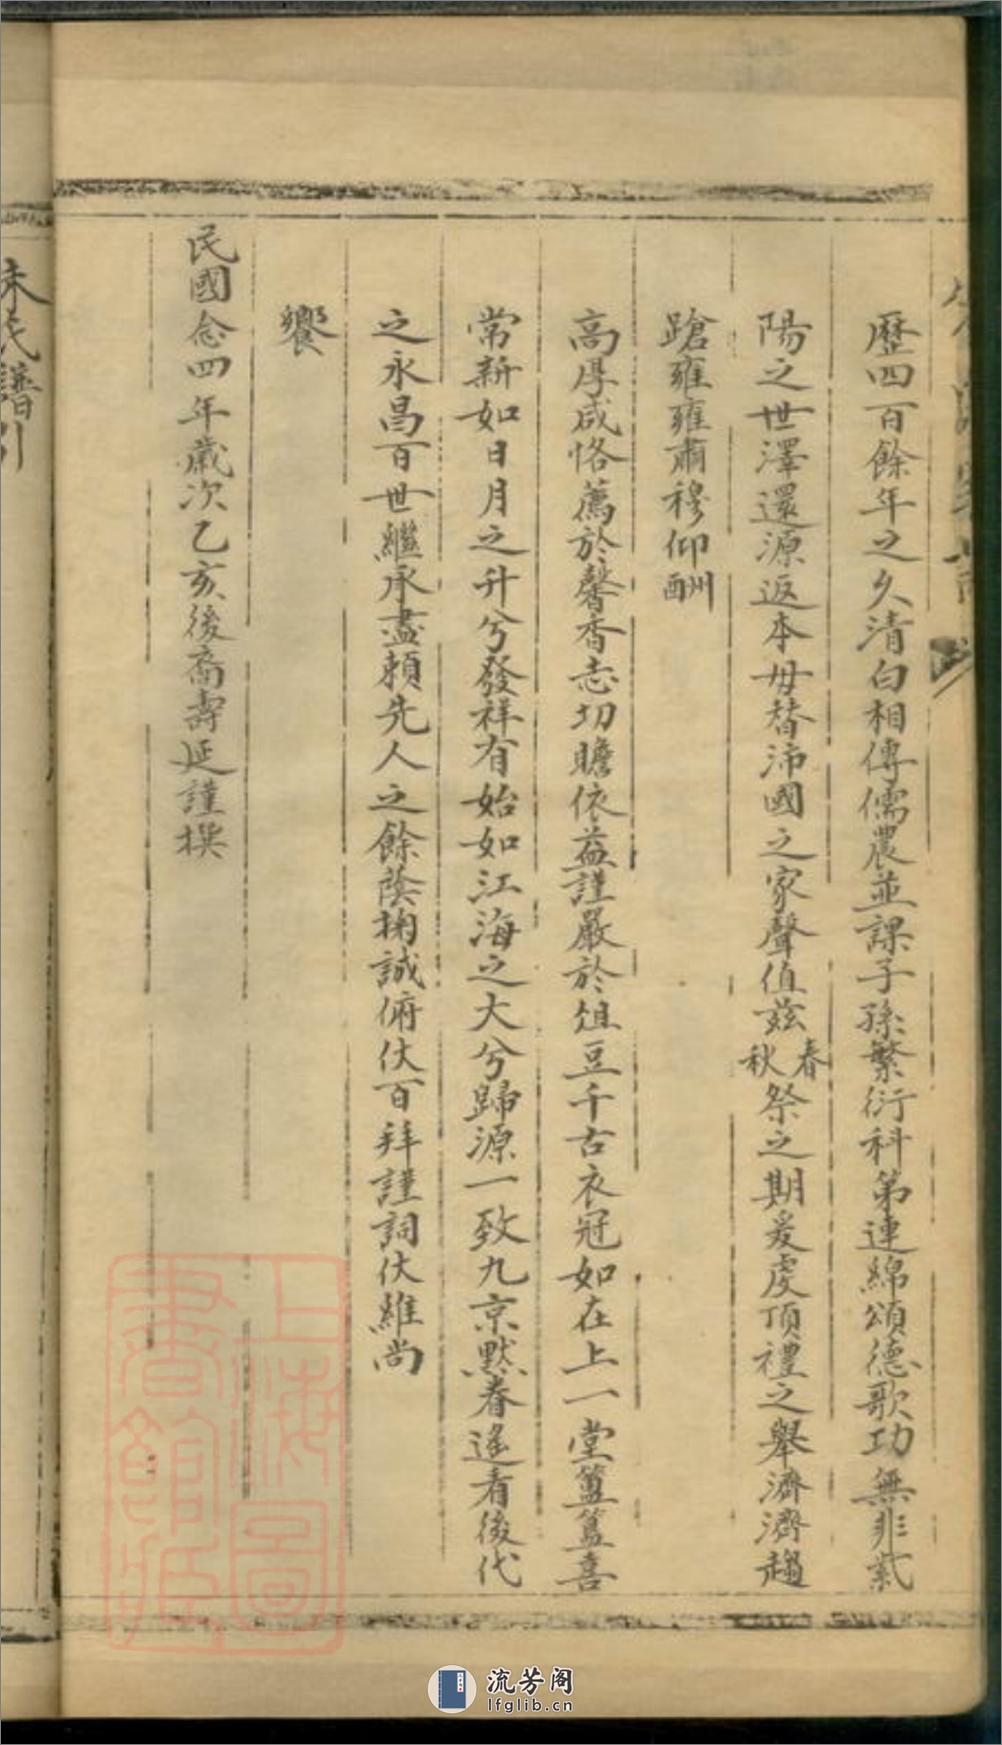 歷四百餘年之久清白相傳儒農並課子孫繁衍科第連綿頌德歌功無非紫
陽之世澤還源返本毋替沛國之家聲值茲春秋祭之期爰虔頂禮之舉濟濟趨
蹌雍雍肅穆仰酬
高厚咸恪薦於馨香志切瞻依益謹嚴於俎豆千古衣冠如在上一堂簠簋喜
常新如日月之升兮發祥有始如江海之大兮歸源一致九京默眷遙看後代
之永昌百世繼承盡賴先人之餘蔭掬誠俯伏百拜謹詞伏維尚
饗
民國念四年歲次乙亥後裔壽延謹撰
朱氏譜引
上海圖書館藏
流芳阁
lfglib.cn